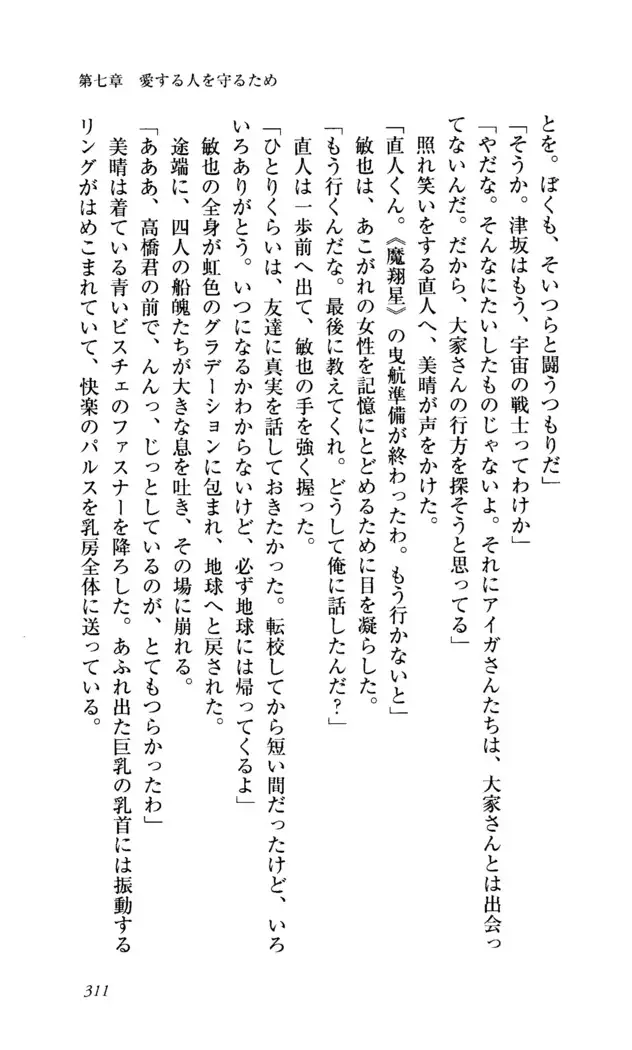 第七章　愛する人を守るため
とを。ぼくも、そいつらと闘うつもりだ」
「そうか。津坂はもう、宇宙の戦士ってわけか」
「やだな。そんなにたいしたものじゃないよ。それにアイガさんたちは、大家さんとは出会っ
てないんだ。だから、大家さんの行方を探そうと思ってる」
照れ笑いをする直人へ、美晴が声をかけた。
「直人くん。《魔翔星》の曳航準備が終わったわ。もう行かないと」
敏也は、あこがれの女性を記憶にとどめるために目を凝らした。
「もう行くんだな。最後に教えてくれ。どうして俺に話したんだ？」
直人は一歩前へ出て、敏也の手を強く握った。
「ひとりくらいは、友達に真実を話しておきたかった。転校してから短い間だったけど、いろ
いろありがとう。いつになるかわからないけど、必ず地球には帰ってくるよ」
敏也の全身が虹色のグラデーションに包まれ、地球へと戻された。
途端に、四人の船魄たちが大きな息を吐き、その場に崩れる。
「あああ、高橋君の前で、んんっ、じっとしているのが、とてもつらかったわ」
美晴は着ている青いビスチェのファスナーを降ろした。あふれ出た巨乳の乳首には振動する
リングがはめこまれていて、快楽のパルスを乳房全体に送っている。
311